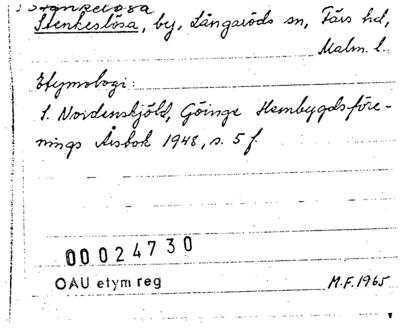 Stenkelösa
Stenkeslösa, by, Långaröds sn, Färs hd,
Malm. l.
Etymologi:
S. Nordenskjöld, Göinge Hembygdsföre-
nings Årsbok 1948, s. 5 f.
00024730
OAU etym reg
M.F. 1965